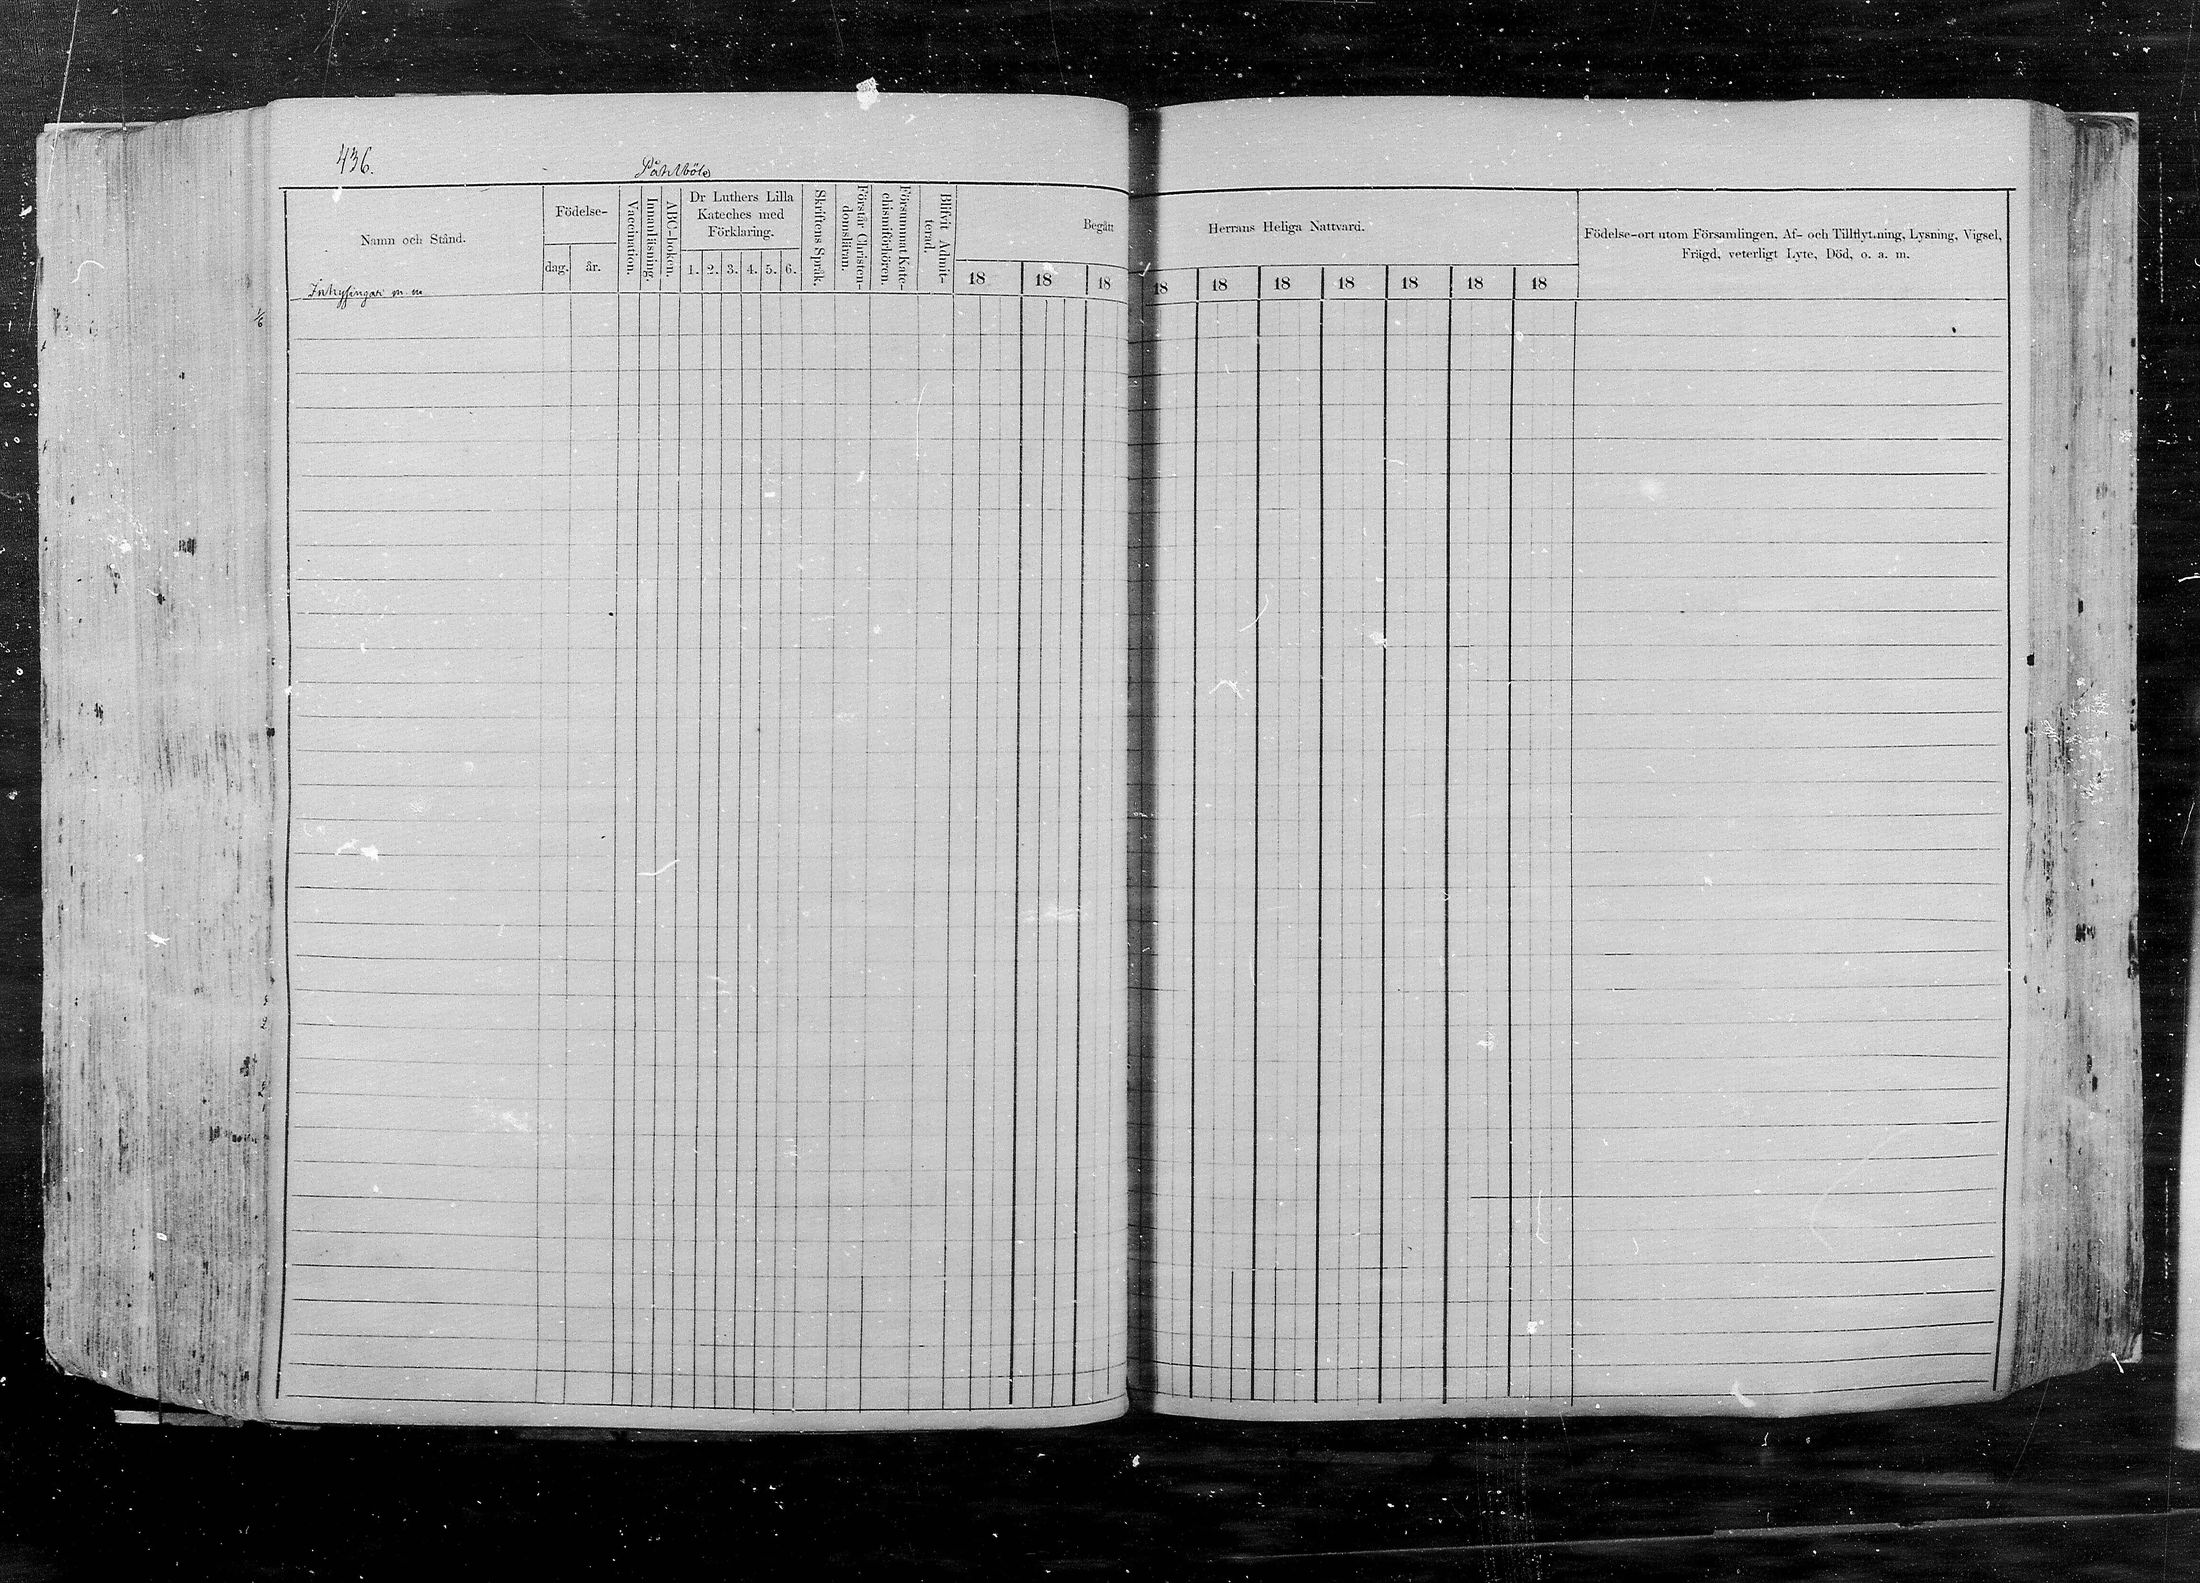 436.
Påhlböle
Namn och Stånd.
Födelse-
dag.
år.
Vaccination.
Innanläsning.
ABC-boken.
Dr Luthers Lilla
Kateches med
Förklaring.
1. 2. 3. 4. 5. 6.
Skriftens Språk.
Förstår Christen-
domsläran.
Försummat Kate-
chismiförhören.
Blifvit Admit-
terad.
Begått
Herrans Heliga Nattvard.
18 18 18 18 18 18 18 18 18 18
Födelse-ort utom Församlingen, Af- och Tillflyttning, Lysning, Vigsel,
Frägd, veterligt Lyte, Död, o. a. m.
Inhysingar m m